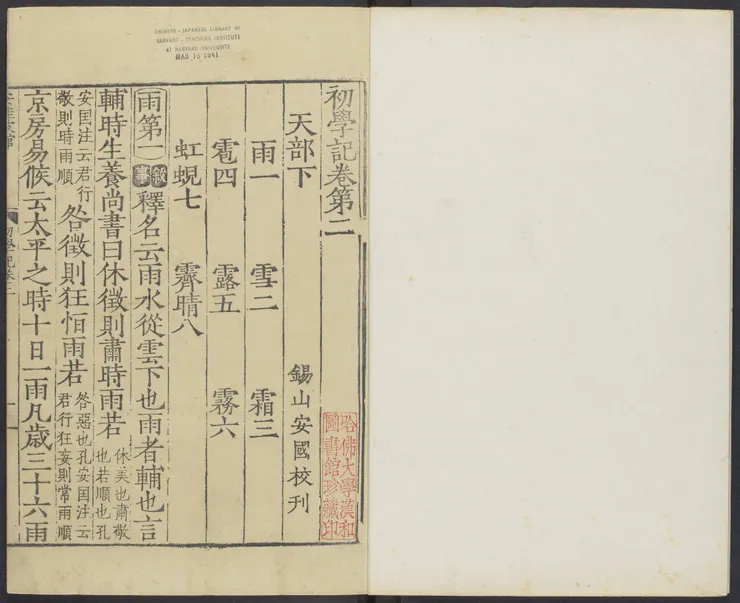 CHINESE - JAPANESE LIBRARY OF
HARVARD - YENCHING INSTITUTE
AT HARVARD UNIVERSITY
MAR 15 1941
初學記卷第二
哈佛大學漢和
圖書館珍藏印
天部下 錫山安國校刊
雨一 雪二 霜三
雹四 露五 霧六
虹蜺七 霽晴八
雨第一 敘事 釋名云雨水從雲下也雨者輔也言
輔時生養尚書曰休徵則肅時雨若
休美也肅敬
也若順也孔
安囯注云君行
敬則時雨順
咎徵則狂恒雨若
咎惡也孔安囯注云
君行狂妄則常雨順
京房易候云太平之時十日一雨凡歲三十六雨